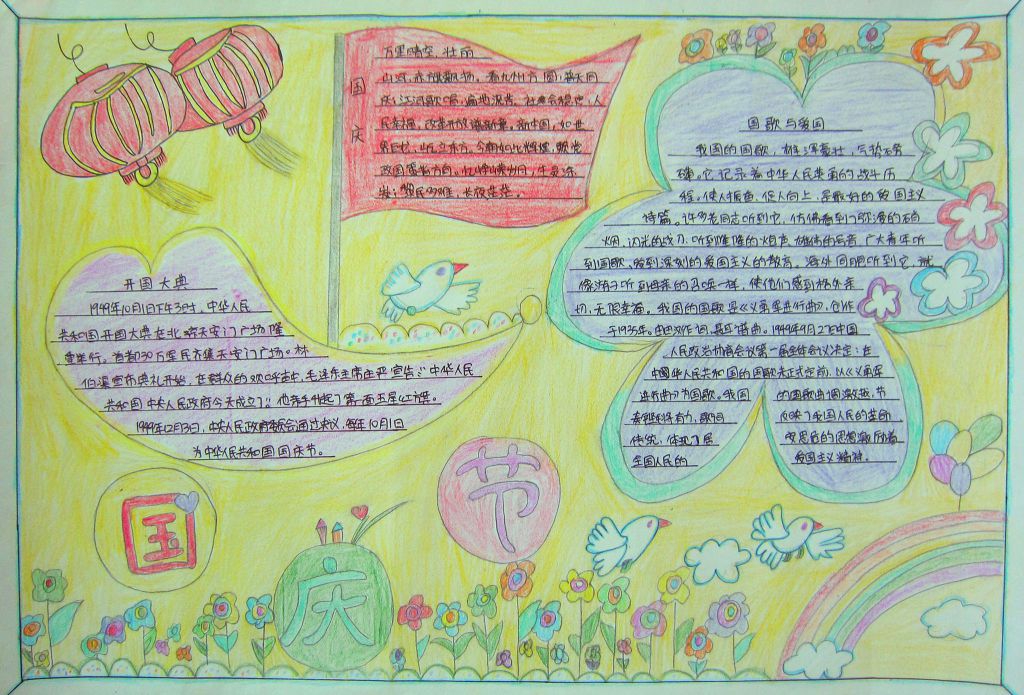 国庆
万里晴空，壮丽
山河，赤旗飘扬。看九州方圆，普天同
庆；江河歌唱，遍地
民幸福，改革开放谱新章。新中国，如
东方，今朝
政国策
多难，
国歌与爱国
我国的国歌，雄浑豪壮，气势磅
礴。它记录着中华人民英勇的战斗历
程。使人振奋，促人向上，是最好的爱国主义
诗篇。许多老同志听到它，仿佛看到了弥漫的硝
烟，闪光的战刀，听到隆隆的炮声，雄伟的吼音。广大青年听
到国歌，受到深刻的爱国主义的教育。海外同胞听到它，就
像游子听到母亲的召唤一样，使他们感到格外亲
切，无限幸福。我国的国歌是《义勇军进行曲》，创作
于1935年。由田汉作词，聂耳谱曲。1949年9月27日中国
人民政治协商会议第一届全体会议决定：在
中华人民共和国的国歌未正式定前，以《义勇军
进行曲》为国歌。我国
的国歌曲调激越，节
奏铿锵有力，歌词
反映了我国人民的革命
传统，体现了居
安思危的思想，激励着
全国人民的
爱国主义精神。
开国大典
1949年10月1日下午3时，中华人民
共和国开国大典在北京天安门广场隆
重举行，首都30万军民齐集天安门广场。林
伯渠宣布典礼开始，在群众的欢呼声中，毛泽东主席庄严宣告：“中华人民
共和国中央人民政府今天成立了！”他亲手升起了第一面五星红旗。
1949年12月3日，中央人民政府委员会通过决议，每年10月1日
为中华人民共和国国庆节。
国
庆
节